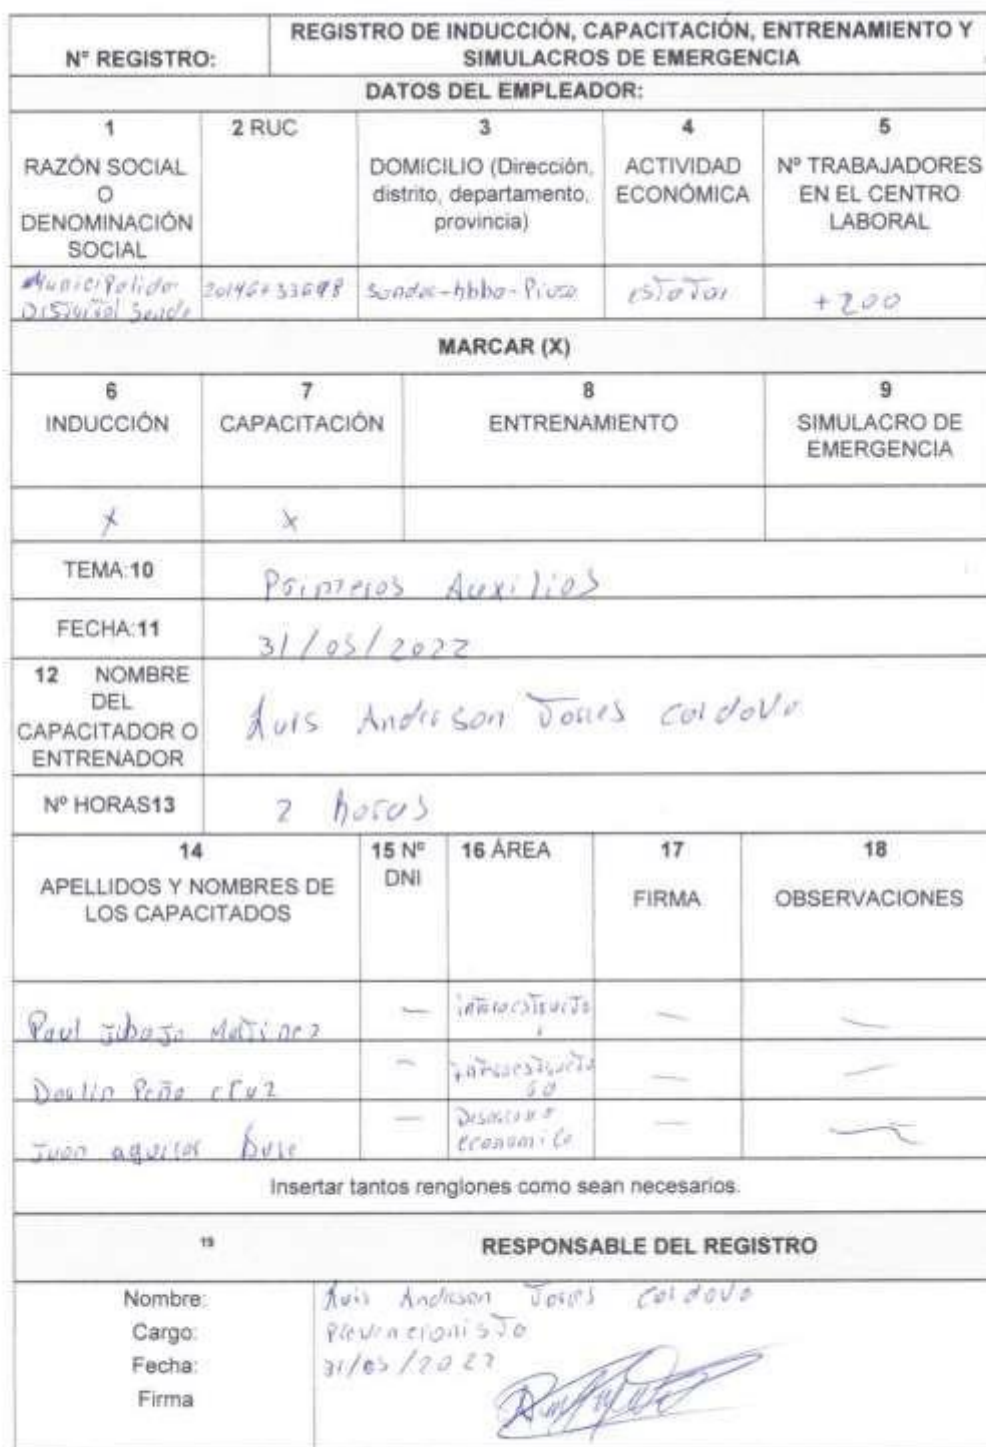 Nº REGISTRO:
REGISTRO DE INDUCCIÓN, CAPACITACIÓN, ENTRENAMIENTO Y
SIMULACROS DE EMERGENCIA
DATOS DEL EMPLEADOR:
1
RAZÓN SOCIAL
O
DENOMINACIÓN
SOCIAL
2 RUC
3
DOMICILIO (Dirección,
distrito, departamento,
provincia)
4
ACTIVIDAD
ECONÓMICA
5
Nº TRABAJADORES
EN EL CENTRO
LABORAL
Municipalidad
Distrital
+200
MARCAR (X)
6
INDUCCIÓN
7
CAPACITACIÓN
8
ENTRENAMIENTO
9
SIMULACRO DE
EMERGENCIA
X
X
TEMA:10
Primeros Auxilios
FECHA:11
31/05/2022
12 NOMBRE
DEL
CAPACITADOR O
ENTRENADOR
Luis Anderson Torres Cordova
Nº HORAS13
2 horas
14
APELLIDOS Y NOMBRES DE
LOS CAPACITADOS
15 Nº
DNI
16 ÁREA
17
FIRMA
18
OBSERVACIONES
Paul
Peña Cruz
Juan aguilar
economico
Insertar tantos renglones como sean necesarios.
19
RESPONSABLE DEL REGISTRO
Nombre: Luis Anderson Torres Cordova
Cargo: Prevencionista
Fecha: 31/05/2022
Firma